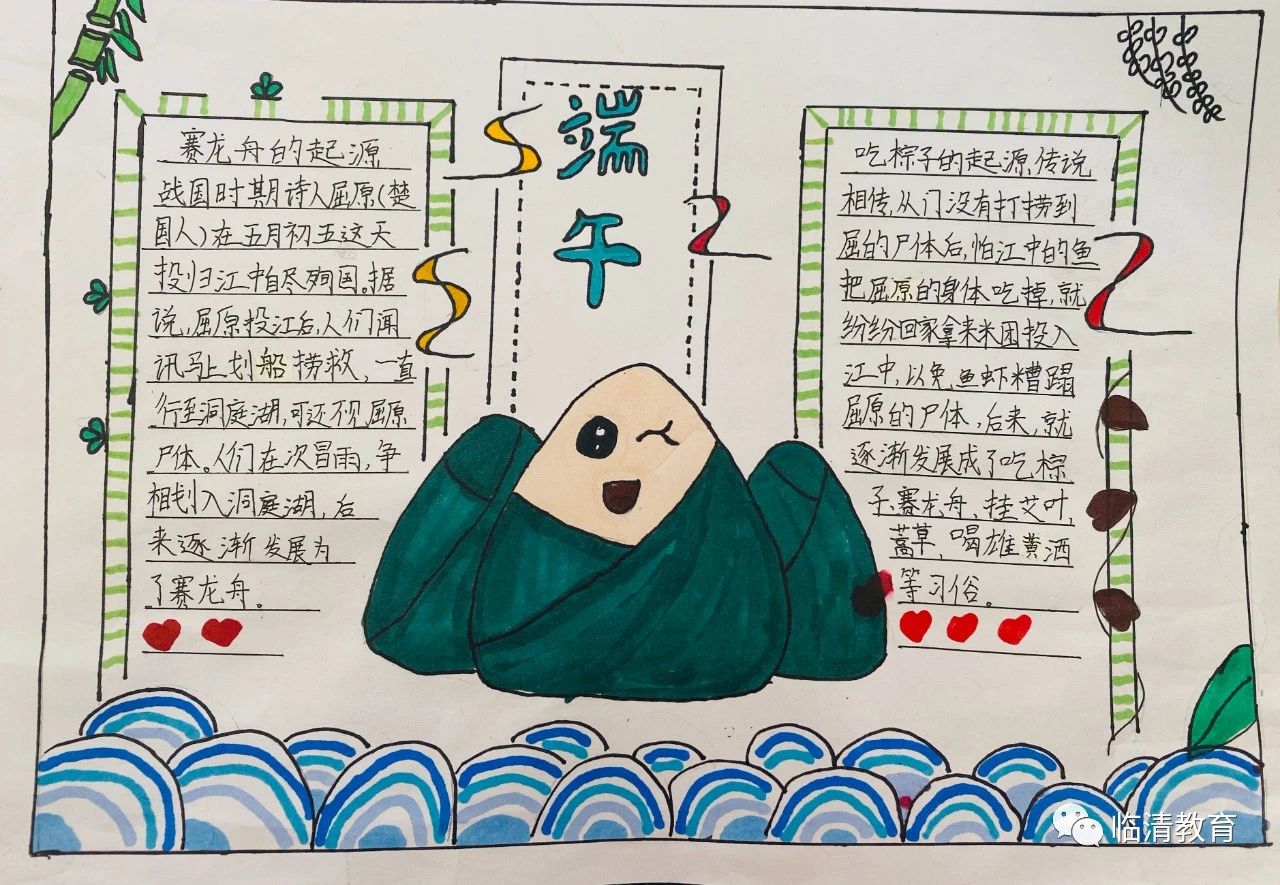 端午
赛龙舟的起源
战国时期诗人屈原(楚
国人)在五月初五这天
投归江中自尽殉国。据
说,屈原投江后,人们闻
讯马上划船捞救,一直
行至洞庭湖,可还不见屈原
尸体。人们在次冒雨,争
相划入洞庭湖,后
来逐渐发展为
了赛龙舟。
吃棕子的起源传说
相传,从门没有打捞到
屈的尸体后,怕江中的鱼
把屈原的身体吃掉,就
纷纷回家拿来米团投入
江中,以免鱼虾糟蹋
屈原的尸体,后来,就
逐渐发展成了吃棕
子,赛龙舟、挂艾叶,
蒿草,喝雄黄酒
等习俗。
临清教育